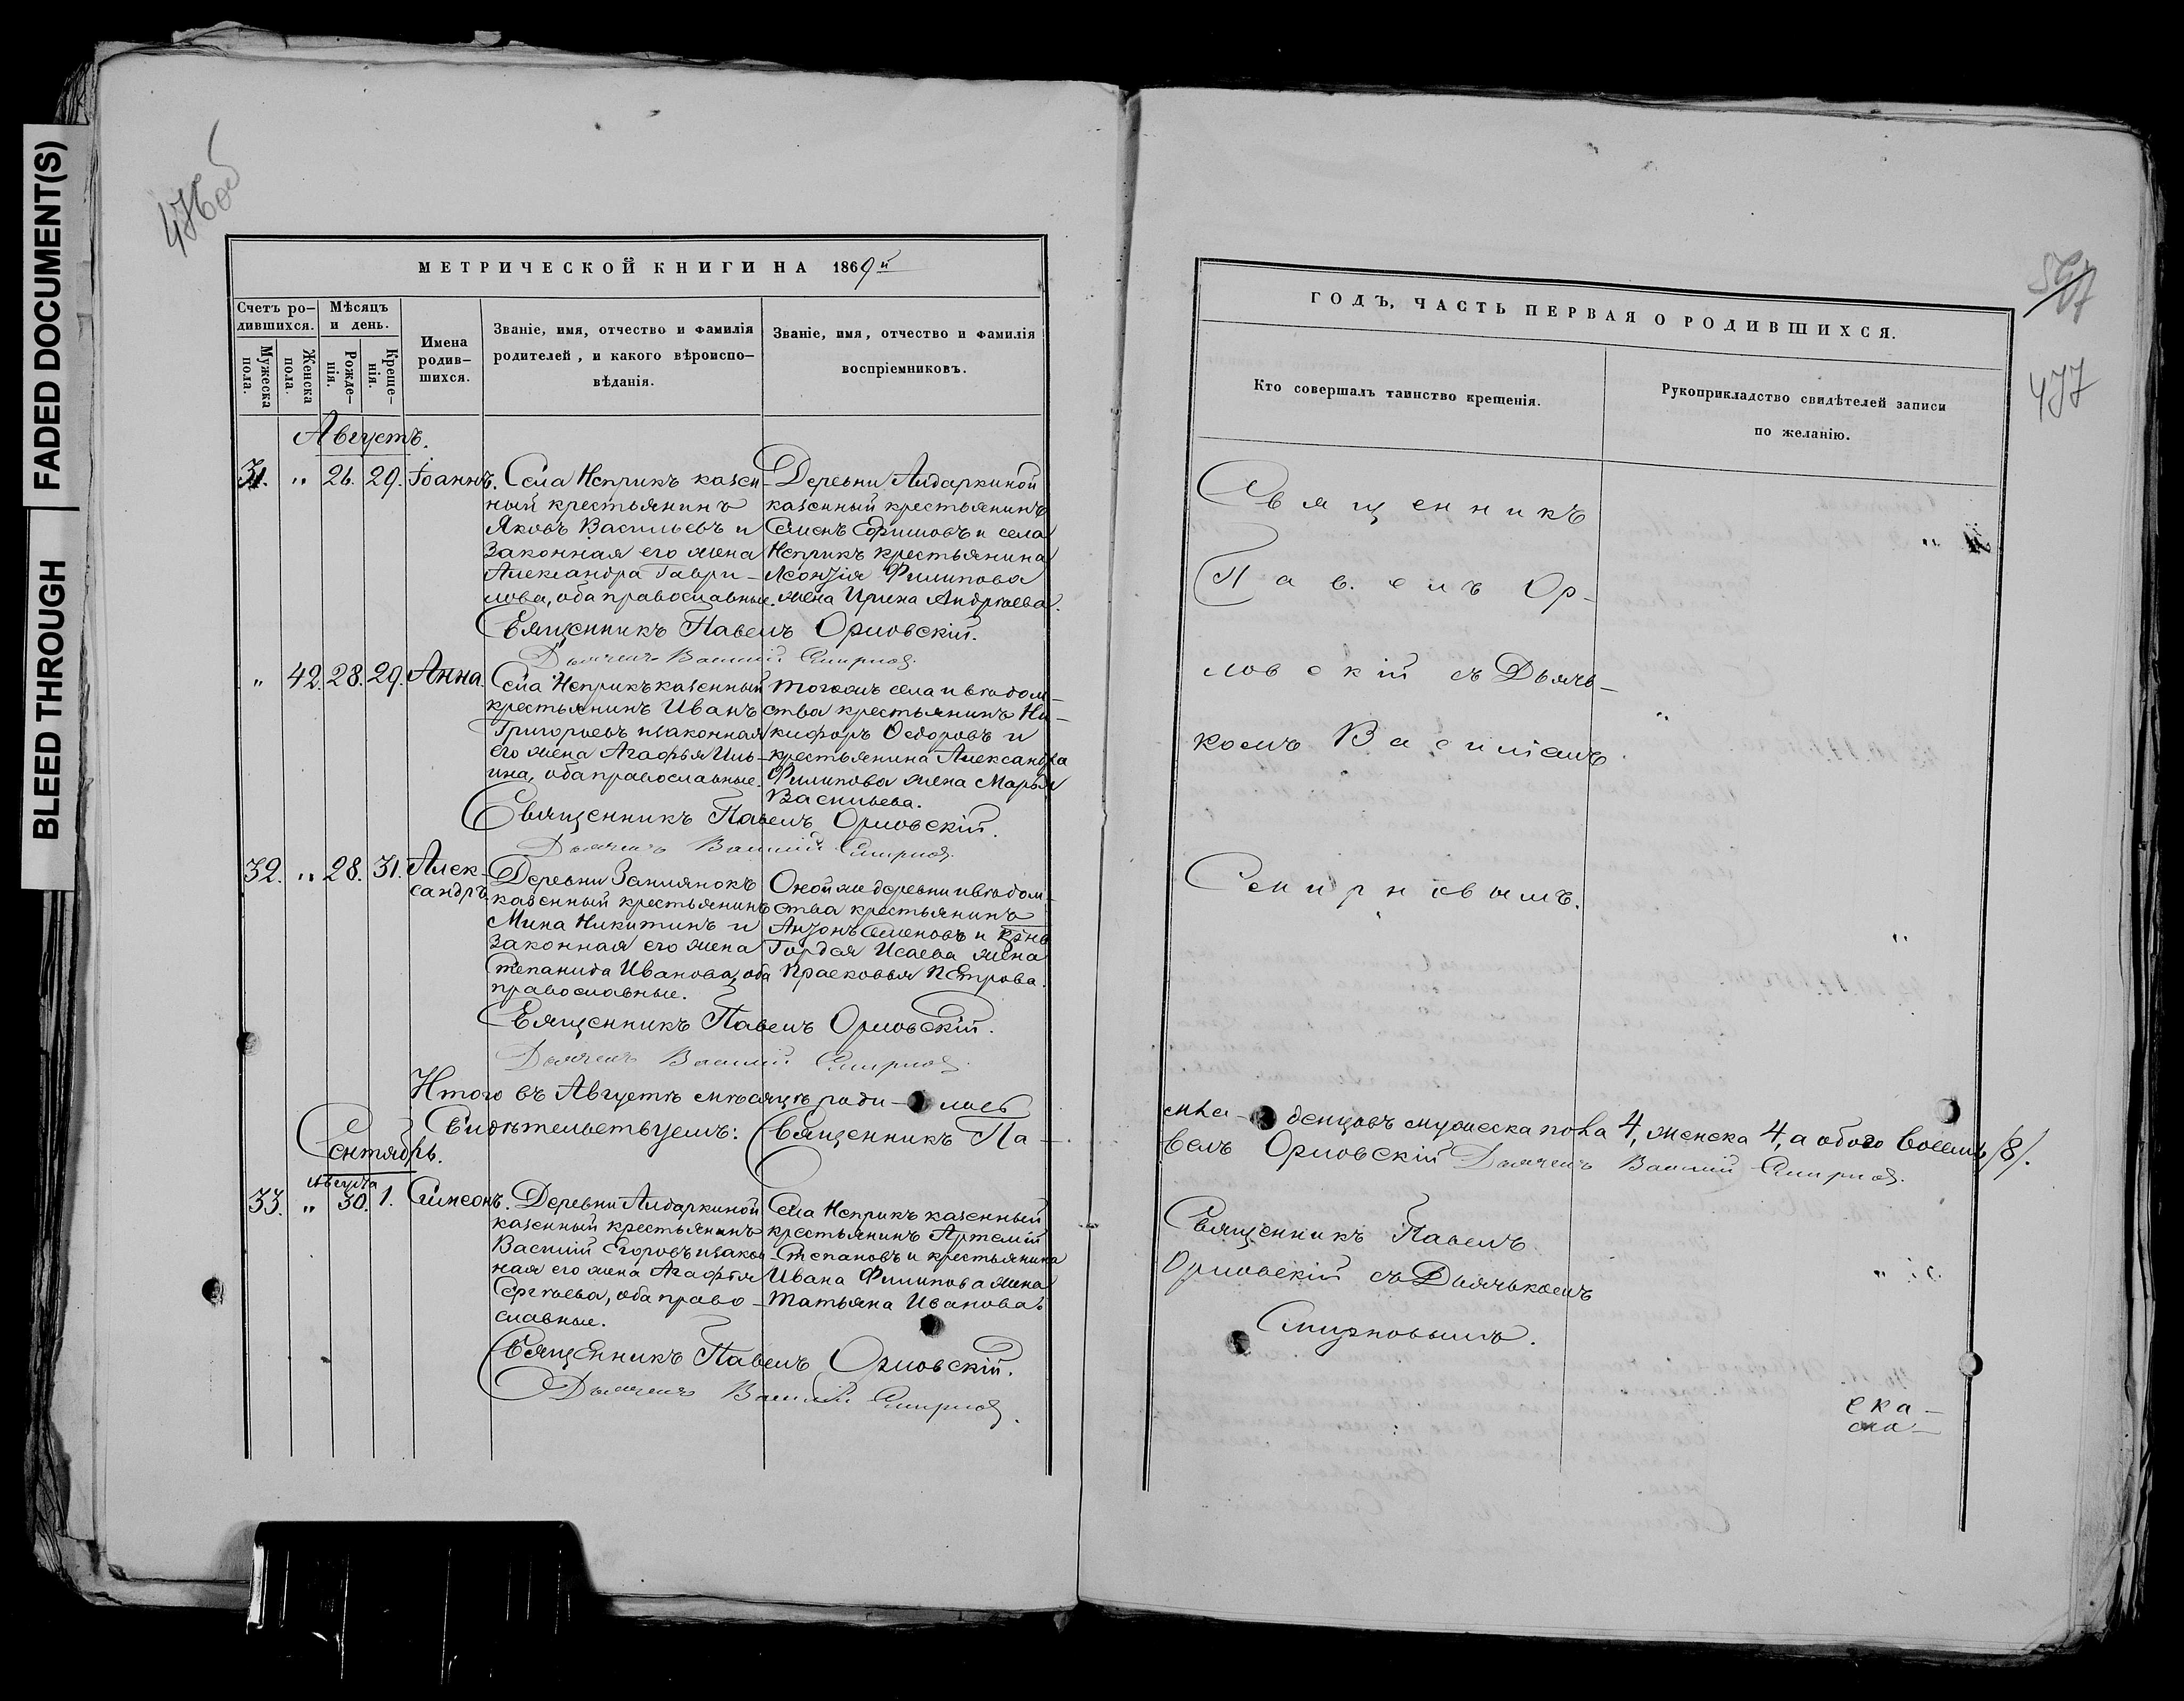 FADED DOCUMENT(S)
BLEED THROUGH
476об
МЕТРИЧЕСКОЙ КНИГИ НА 1869й
Счетъ ро-
дившихся.
Мужеска
пола.
Женска
пола.
Мѣсяцъ
и день.
Рожде-
нія.
Креще-
нія.
Имена
родив-
шихся.
Званіе, имя, отчество и фамилія
родителей, и какого вѣроиспо-
вѣданія.
Званіе, имя, отчество и фамилія
воспріемниковъ.
Августъ.
31. " 26. 29. Іоаннъ.
Села Неприкъ казен-
ный крестьянинъ
Яковъ Васильевъ и
законная его жена
Александра Гаври-
лова, оба православные.
Деревни Аидаркиной
казенный крестьянинъ
Сименъ Ефимовъ и села
Неприкъ крестьянина
Леонтія Филипова
жена Ирина Андреева.
Священникъ Павелъ Орловскій.
Дьячекъ Василій Смирнов
" 42. 28. 29. Анна.
Села Неприкъ казенный
крестьянинъ Иванъ
Григорьевъ и законная
его жена Агафья Иль-
ина, оба православные.
Тогожъ села и вѣдом-
ства крестьянинъ Ни-
кифоръ Ѳедоровъ и
крестьянина Александра
Филипова жена Марья
Васильева.
Священникъ Павелъ Орловскій.
Дьячекъ Василій Смирнов
32. " 28. 31. Алек-
сандръ.
Деревни Землянокъ
казенный крестьянинъ
Мина Никитинъ и
законная его жена
Степанида Иванова, оба
православные.
Оной же деревни и вѣдом-
ства крестьянинъ
Антонъ Семеновъ и
Гордея Исаева жена
Прасковья Петрова.
Священникъ Павелъ Орловскій.
Дьячекъ Василій Смирнов
Итого въ Августѣ мѣсяцѣ роди-лось
Свидѣтельствуемъ: Священникъ Па-
Сентябрь.
Августа
33. " 30. 1. Симеонъ.
Деревни Аидаркиной
казенный крестьянинъ
Василій Егоровъ и закон-
ная его жена Агафья
Сергѣева, оба право-
славные.
Села Неприкъ казенный
крестьянинъ Артемій
Степановъ и крестьянина
Ивана Филипова жена
Татьяна Иванова.
Священникъ Павелъ Орловскій.
Дьячекъ Василій Смирнов.
477
ГОДЪ, ЧАСТЬ ПЕРВАЯ О РОДИВШИХСЯ.
Кто совершалъ таинство крещенія.
Рукоприкладство свидѣтелей записи
по желанію.
Священникъ
Павелъ Ор-
ловскій съ Дьячь-
комъ Василіемъ
Смирновымъ.
мла-денцовъ мужеска пола 4, женска 4, а обоего восемь /8/.
велъ Орловскій Дьячекъ Василій Смирнов.
Священникъ Павелъ
Орловскій съ Дьячькомъ
Смирновымъ.